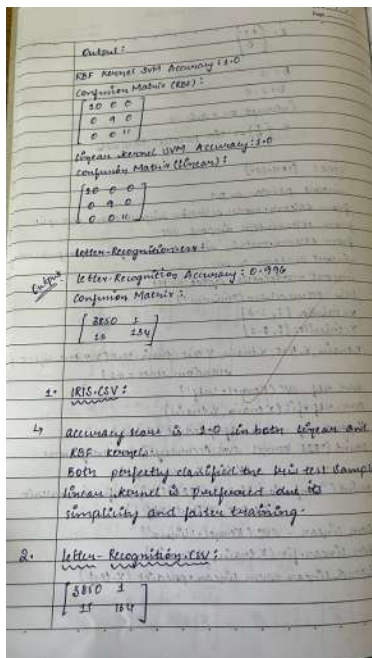 Output:
RBF Kernel SVM Accuracy: 1.0
Confusion Matrix (RBF):
[10 0 0
0 9 0
0 0 11]
Linear kernel SVM Accuracy: 1.0
Confusion Matrix (linear):
[10 0 0
0 9 0
0 0 11]
letter-Recognition.csv:
Output
letter-Recognition Accuracy: 0.996
Confusion Matrix:
[3850 1
15 134]
1. IRIS.CSV:
↳ accuracy score is 1.0 in both linear and
RBF kernels.
Both perfectly classified the iris test samp
linear kernel is preferred due its
simplicity and faster training.
2. letter-Recognition.CSV:
[3850 1
15 134]